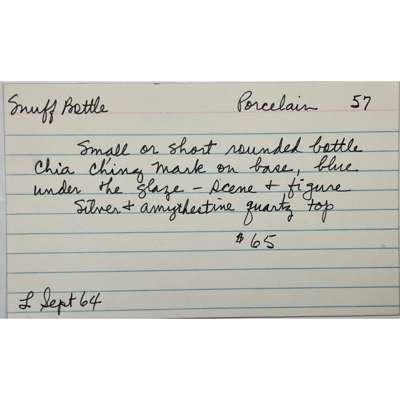 Snuff Bottle Porcelain 57
Small or short rounded bottle
Chia Ch'ing mark on base, blue
under the glaze – scene & figure
Silver & amythestine quartz top
$65
L Sept 64